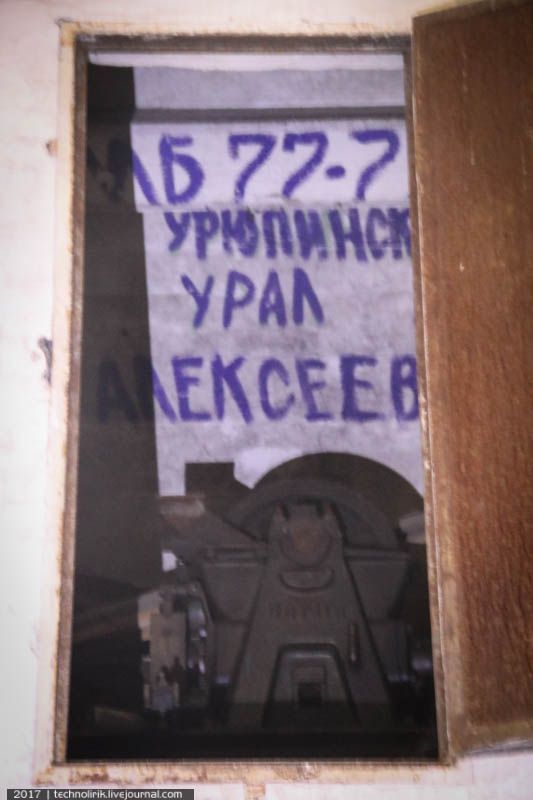 АБ 77-7
УРЮПИНСК
УРАЛ
АЛЕКСЕЕВ
2017 | technolirik.livejournal.com